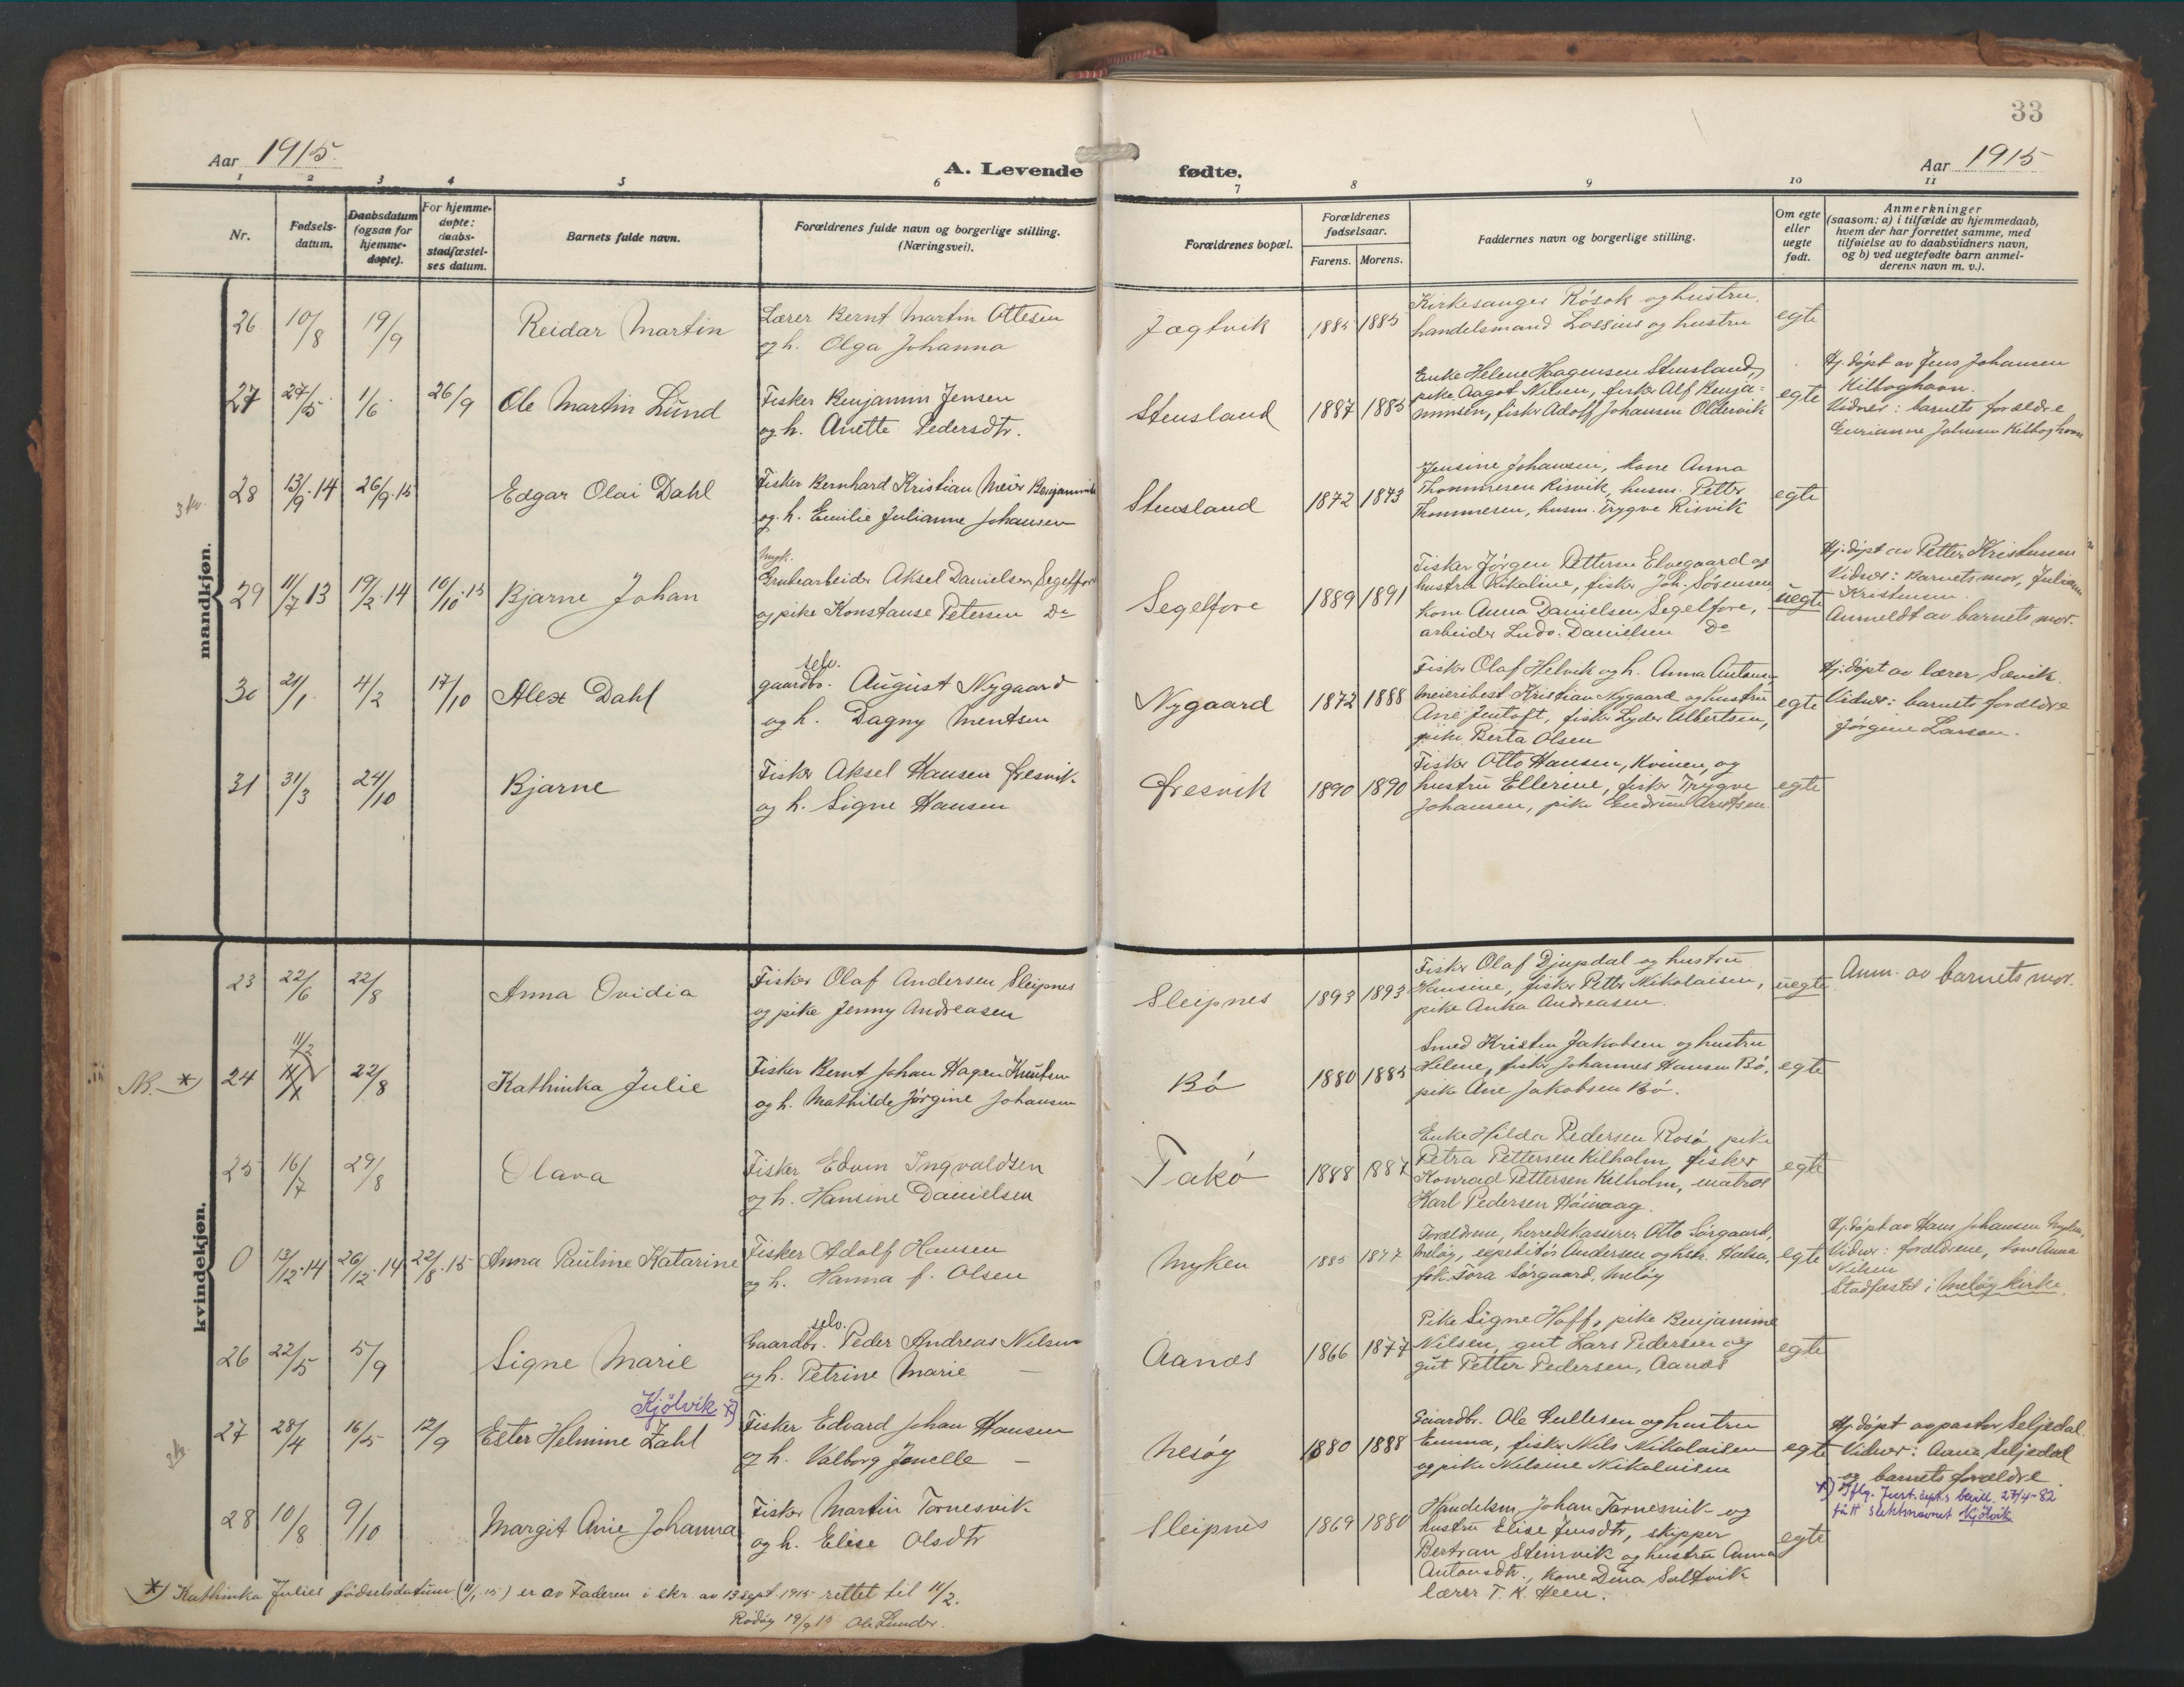 33
Aar 1915.
A. Levende fødte.
Aar 1915
1 2 3 4 5 6 7 8 9 10 11
Nr.
Fødsels-
datum.
Daabsdatum
(ogsaa for
hjemme-
døpte).
For hjemme-
døpte:
daabs-
stadfæstel-
ses datum.
Barnets fulde navn.
Forældrenes fulde navn og borgerlige stilling.
(Næringsvei).
Forældrenes bopæl.
Forældrenes
fødselsaar.
Farens. Morens.
Faddernes navn og borgerlige stilling.
Om egte
eller
uegte
født.
Anmerkninger
(saasom: a) i tilfælde av hjemmedaab,
hvem der har forrettet samme, med
tilføielse av to daabsvidners navn,
og b) ved uegtefødte barn anmel-
derens navn m. v.).
mandkjøn.
26 10/8 19/9 Reidar Martin
Lærer Bernt Martin Ottesen
og h. Olga Johanna
Jægtvik 1885 1885
Kirkesanger Røsok og hustru,
handelsmand Lossius og hustru
egte
27 27/5 1/6 26/9 Ole Martin Lund
Fisker Benjamin Jensen
og h. Anette Pedersdtr.
Stensland 1887 1885
Enke Helene Haagensen Stensland,
pike Aagot Nilsen, fisker Alf Benja-
minsen, fisker Adolf Johansen Oldervik
egte
Hj. døpt av Jens Johansen
Kilboghavn.
Vidner: barnets forældre
Johansen Kilboghavn
3 kv.
28 13/9.14 26/9.15 Edgar Olai Dahl
Fisker Bernhard Kristian Meier Benjaminsen
og h. Emilie Julianne Johansen
Stensland 1872 1873
Jensine Johansen, kone Anna
Thommesen Risvik, husm. Petter
Thommesen, husm. Trygve Risvik
egte
29 11/7 13 19/2.14 10/10.15 Bjarne Johan
ungk.
Grubearbeider Aksel Danielsen Segelfore
og pike Konstanse Petersen Do
Segelfore 1889 1891
Fisker Jørgen Pettersen Elvegaard og
hustru Rikaline, fisker Joh. Sørensen,
kone Anna Danielsen Segelfore,
arbeider Ludv. Danielsen Do
uegte
Hj. døpt av Petter Kristensen
Vidner: Barnets mor, Juliane
Kristensen.
Anmeldt av barnets mor.
30 21/1 4/2 17/10 Alex Dahl
selv.
gaardbr. August Nygaard
og h. Dagny Mentsen
Nygaard 1872 1888
Fisker Olaf Helvik og h. Anna Antonsen
meieribest. Kristian Nygaard og hustru
Ane Jentoft, fisker Lyder Albertsen,
pike Berta Olsen
egte
Hj. døpt av lærer Sævik.
Vidner: barnets forældre
Jørgine Larsen.
31 31/3 24/10 Bjarne
Fisker Aksel Hansen Gresvik
og h. Signe Hansen
Gresvik 1890 1890
Fisker Otto Hansen, Kvinen, og
hustru Ellerine, fisker Trygve
Johansen, pike Gudrun Arntsen
egte
kvindekjøn.
23 22/6 22/8 Anna Ovidia
Fisker Olaf Andersen Sleipnes
og pike Jenny Andreasen
Sleipnes 1893 1893
Fisker Olaf Djupdal og hustru
Hansine, fisker Petter Nikolaisen,
pike Anka Andreasen.
uegte
Anm. av barnets mor.
NB. *)
24 11/2 11/1 22/8 Kathinka Julie
Fisker Bernt Johan Hagen Knutsen
og h. Mathilde Jørgine Johansen
Bø 1880 1885
Smed Kristen Jakobsen og hustru
Helene, fisker Johannes Hansen Bø,
pike Ane Jakobsen Bø.
egte
25 16/7 29/8 Olava
Fisker Edvin Ingvaldsen
og h. Hansine Danielsen
Takø 1888 1887
Enke Hilda Pedersen Rosø, pike
Petra Pettersen Kilholm, fisker
Konrad Pettersen Kilholm, matros
Karl Pedersen
egte
0 13/12.14 26/12.14 22/8.15 Anna Pauline Katarine
Fisker Adolf Hansen
og h. Hanna f. Olsen
Myken 1885 1877
Forældrene, herredskasserer Otto Sørgaard,
Meløy, expeditør Andersen og hstr. Halsa,
frk. Tora Sørgaard, Meløy
egte
Hj. døpt av Hans Johansen Myken,
Vidner: forældrene, kone Anna
Nilsen
Stadfæstet i Meløy kirke.
26 22/5 5/9 Signe Marie
selv.
Gaardbr. Peder Andreas Nilsen
og h. Petrine Marie —
Aanes 1866 1877
Pike Signe Hoff, pike Benjamine
Nilsen, gut Lars Pedersen og
gut Petter Pedersen, Aanes
egte
27 28/4 16/5 12/9 Ester Helmine Zahl
Kjölvik *)
Fisker Edvard Johan Hansen
og h. Valborg Jenelle —
Nesøy 1880 1888
Gaardbr. Ole Gullesen og hustru
Emma, fisker Nils Nikolaisen
og pike Nilsine Nikolaisen
egte
Hj. døpt av pastor Seljedal.
Vidner: Anna Seljedal
og barnets forældre
*) Iflg. Just.dept.s bevill. 27/4-82
fått slektsnavnet Kjölvik
28 10/8 9/10 Margit Anie Johanna
Fisker Martin Tornesvik
og h. Elise Olsdtr
Sleipnes 1869 1880
Handelsm. Johan Tarnesvik og
hustru Elise Jensdtr, skipper
Bertran Steinvik og hustru Anna
Antonsdtr., kone Dina Saltvik
lærer T. K. Heen.
egte
*) Kathinka Julies fødselsdatum (11/1.15) er av Faderen i skr. av 13 sept. 1915 rettet til 11/2.
Rødøy 19/9 15 Ole Lunder.